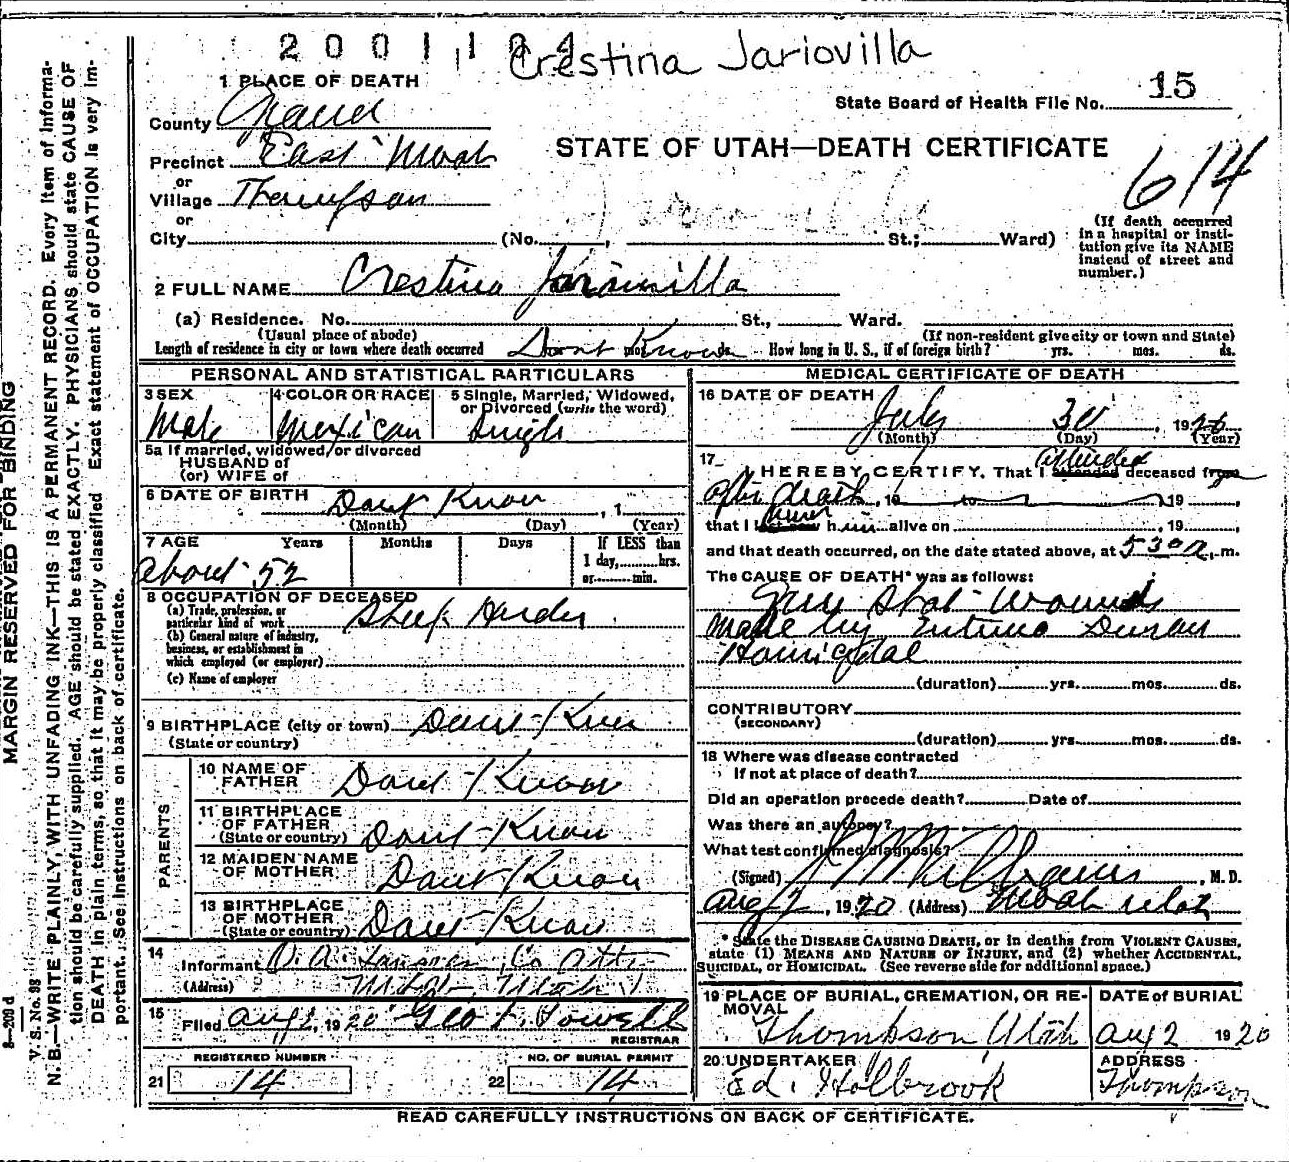 2001104 Crestina Jariovilla
1 PLACE OF DEATH
State Board of Health File No. 15
County Grand
STATE OF UTAH—DEATH CERTIFICATE
614
Precinct East Moab
or
Village Thompson
or
City (No. , St.; Ward)
(If death occurred in a hospital or institution give its NAME instead of street and number.)
2 FULL NAME Crestina Jaramilla
(a) Residence. No. St., Ward.
(Usual place of abode) (If non-resident give city or town and State)
Length of residence in city or town where death occurred Dont Know ds. How long in U. S., if of foreign birth? yrs. mos. ds.
PERSONAL AND STATISTICAL PARTICULARS
3 SEX Male
4 COLOR OR RACE Mexican
5 Single, Married, Widowed, or Divorced (write the word) Single
5a If married, widowed, or divorced
HUSBAND of
(or) WIFE of
6 DATE OF BIRTH Dont Know , 1
(Month) (Day) (Year)
7 AGE Years Months Days If LESS than
1 day, hrs.
or min.
About 52
8 OCCUPATION OF DECEASED
(a) Trade, profession, or
particular kind of work Sheep Herder
(b) General nature of industry,
business, or establishment in
which employed (or employer)
(c) Name of employer
9 BIRTHPLACE (city or town) Dont Know
(State or country)
PARENTS
10 NAME OF
FATHER Dont Know
11 BIRTHPLACE
OF FATHER
(State or country) Dont Know
12 MAIDEN NAME
OF MOTHER Dont Know
13 BIRTHPLACE
OF MOTHER
(State or country) Dont Know
14
Informant Co Atty
(Address) Moab, Utah
15
Filed Aug 2, 1920 Geo F. Powell
REGISTRAR
REGISTERED NUMBER NO. OF BURIAL PERMIT
21 14 22 14
MEDICAL CERTIFICATE OF DEATH
16 DATE OF DEATH
July 30 , 1920
(Month) (Day) (Year)
17
I HEREBY CERTIFY, That I attended deceased from
after death , 19 to 19 ,
that I last saw him alive on , 19 ,
and that death occurred, on the date stated above, at 530 a. m.
The CAUSE OF DEATH* was as follows:
Gun Shot Wounds
made by Duran
Homicidal
(duration) yrs. mos. ds.
CONTRIBUTORY
(SECONDARY)
(duration) yrs. mos. ds.
18 Where was disease contracted
If not at place of death?
Did an operation precede death? Date of
Was there an autopsy?
What test confirmed diagnosis?
(Signed) Williams , M. D.
Aug 2 , 1920 (Address) Moab Utah
* State the DISEASE CAUSING DEATH, or in deaths from VIOLENT CAUSES,
state (1) MEANS AND NATURE OF INJURY, and (2) whether ACCIDENTAL,
SUICIDAL, or HOMICIDAL. (See reverse side for additional space.)
19 PLACE OF BURIAL, CREMATION, OR RE-
MOVAL
Thompson Utah
DATE of BURIAL
Aug 2 1920
20 UNDERTAKER
Ed. Holbrook
ADDRESS
Thompson
READ CAREFULLY INSTRUCTIONS ON BACK OF CERTIFICATE.
MARGIN RESERVED FOR BINDING
V. S. No. 98
N. B.—WRITE PLAINLY, WITH UNFADING INK—THIS IS A PERMANENT RECORD. Every Item of Informa-
tion should be carefully supplied. AGE should be stated EXACTLY. PHYSICIANS should state CAUSE OF
DEATH in plain terms, so that it may be properly classified. Exact statement of OCCUPATION is very im-
portant. See instructions on back of certificate.